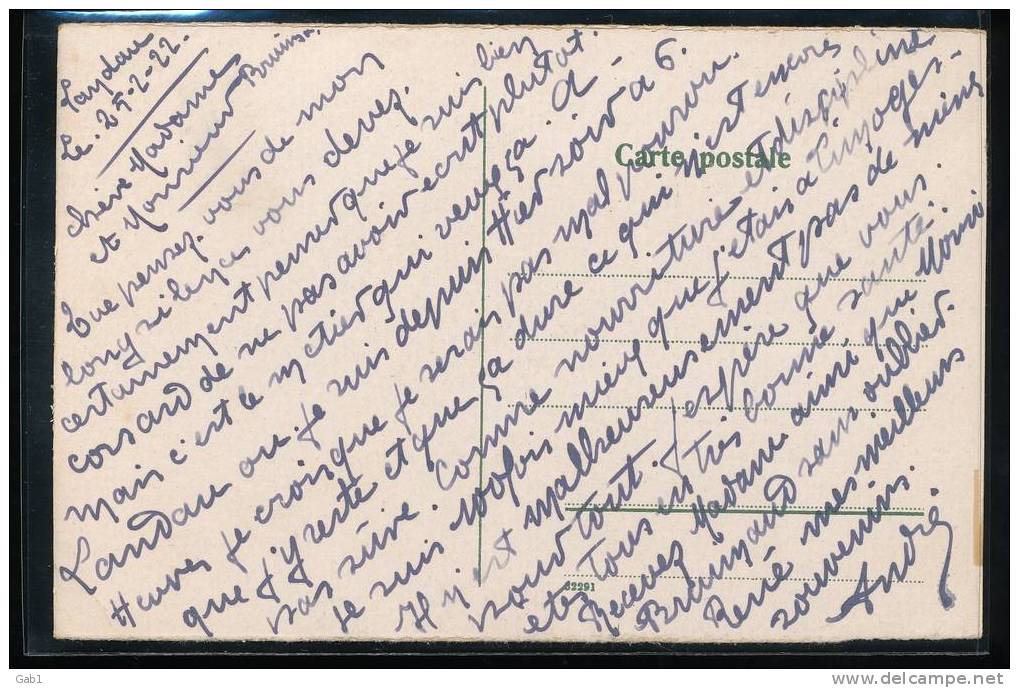 Landau
le. 27-2-22.
chère Madame
et Monsieur Bruinsar.
Que pensez vous de mon
long silence vous devez.
certainement penser que je suis bien
cossard de ne pas avoir écrit plutot.
mais c'est le métier qui veut ça. a
Landau ou. je suis depuis Hier soir a 6.
Heures je crois que je serais pas mal pourvu.
que j'y reste et que ça dure ce qui n'est encore
pas sûre. Comme nourriture et discipline
je suis 100 fois mieux que j'étais a Limoges.
Il y est malheureusement pas de miens
pour tout. j'espère que vous.
etes tous en très bonne santé.
Recevez Madame ainsi que Monsi
Bruinsard sans oublier.
René mes meilleurs
souvenirs.
André
Carte postale
52291
Gab1